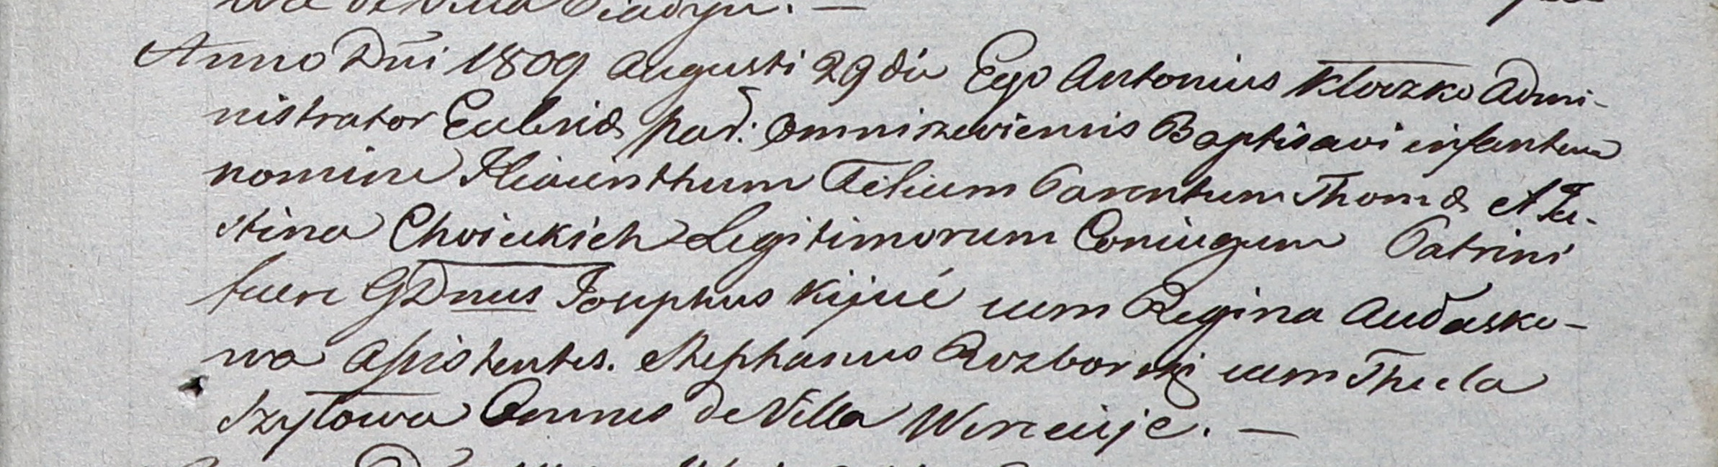 de Villa
Anno Dni 1809 Augusti 29 die Ego Antonius Kloczko Admi-
nistrator Ecclesiæ par: Omniszeviensis Baptisavi infantem
nomine Hiacinthum Filium Parentum Thomæ et Ju-
stina Choieckich Legitimorum Coniugum Patrini
fuere GDnus Josephus Kijuć cum Regina Audasko-
wa Assistentes. Stephanus Rozborski cum Thecla
Szyłowa Omnes de Villa Wiercieje. —